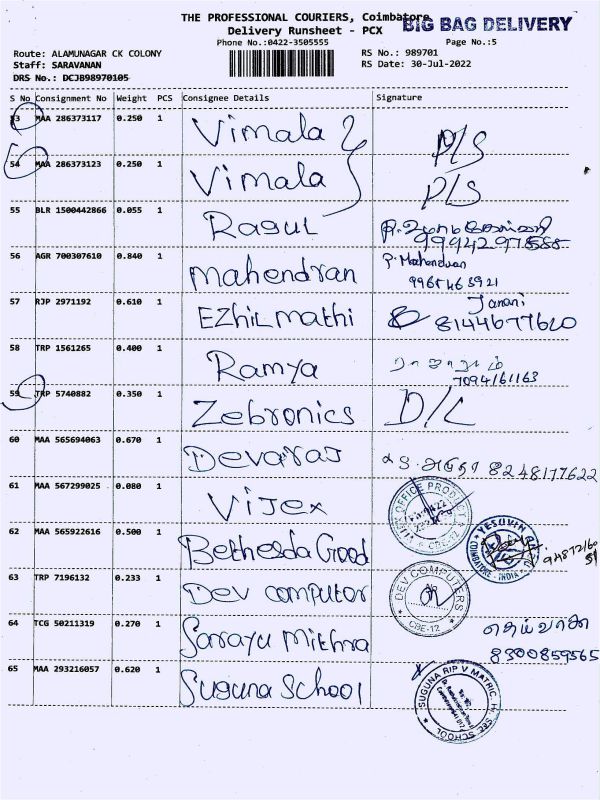 THE PROFESSIONAL COURIERS, Coimbatore
BIG BAG DELIVERY
Delivery Runsheet - PCX
Phone No.:0422-3505555
Page No.:5
Route: ALAMUNAGAR CK COLONY
RS No.: 989701
Staff: SARAVANAN
RS Date: 30-Jul-2022
DRS No.: DCJB98970105
S No Consignment No Weight PCS Consignee Details Signature
53 MAA 286373117 0.250 1 Vimala P/S
54 MAA 286373123 0.250 1 Vimala P/S
55 BLR 1500442866 0.055 1 Ragul
56 AGR 700307610 0.840 1 Mahendran P. Mahendran
9965465921
57 RJP 2971192 0.610 1 Ezhil mathi Janani
8144677620
58 TRP 1561265 0.400 1 Ramya
7094161163
59 TRP 5740882 0.350 1 Zebronics D/L
60 MAA 565694063 0.670 1 Devaraj 8248177622
61 MAA 567299025 0.080 1 Vijex
OFFICE PRODUCT
CBE-12
62 MAA 565922616 0.500 1 Bethesda Good
COIMBATORE - INDIA
63 TRP 7196132 0.233 1 Dev computor
DEV COMPUTERS
CBE-12
64 TCG 50211319 0.270 1 Sarayu Mithra
8300859565
65 MAA 293216057 0.620 1 Suguna School
SUGUNA RIP V MATRIC. Hr. SEC SCHOOL